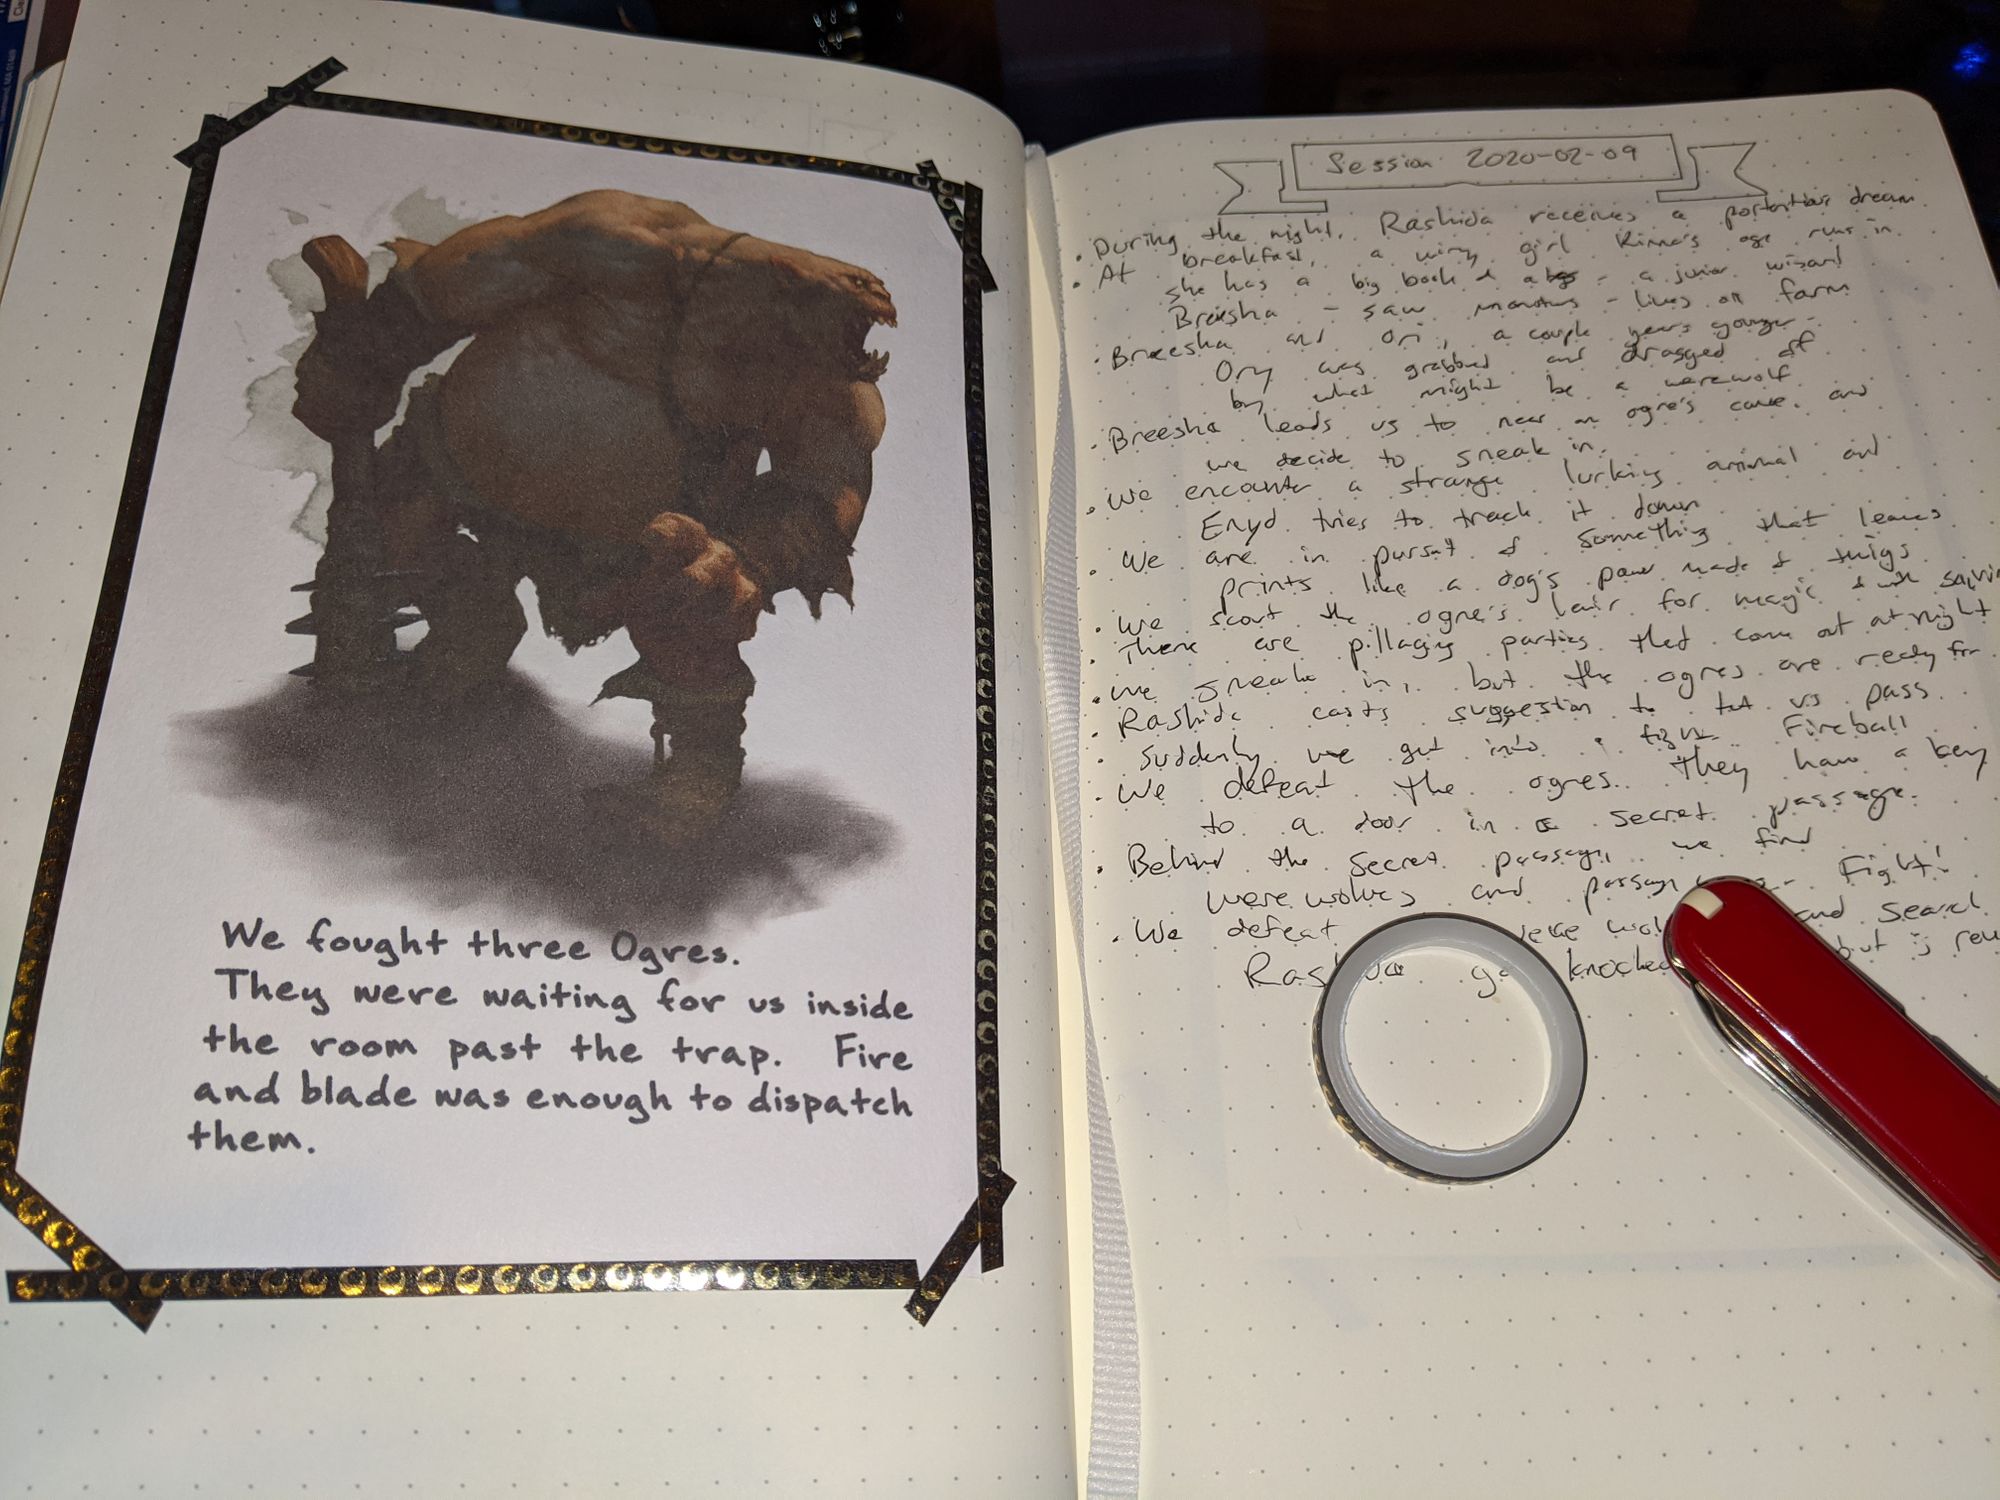 We fought three Ogres.
They were waiting for us inside
the room past the trap. Fire
and blade was enough to dispatch
them.
Session 2020-02-09
During the night, Rashida receives a dream
At breakfast, a winy girl Kinna's age runs in.
She has a big book & a - a junior wizard
Breesha - saw monsters - lives on farm
Breesha and Ori, a couple years younger -
Ory was grabbed and dragged off
by what might be a werewolf
Breesha leads us to near an ogre's cave, and
we decide to sneak in.
We encounter a strange lurking animal and
Enyd tries to track it down
We are in pursuit of something that leaves
prints like a dog's paw made of twigs
We scout the ogre's lair for magic
There are pillaging parties that come out at night
We sneak in, but the ogres are ready for
Rashida casts suggestion to let us pass
Suddenly we get into a fight. Fireball
We defeat the ogres. They have a key
to a door in a secret passage.
Behind the secret passage, we find
werewolves and Fight!
We defeat and search
knocked but is